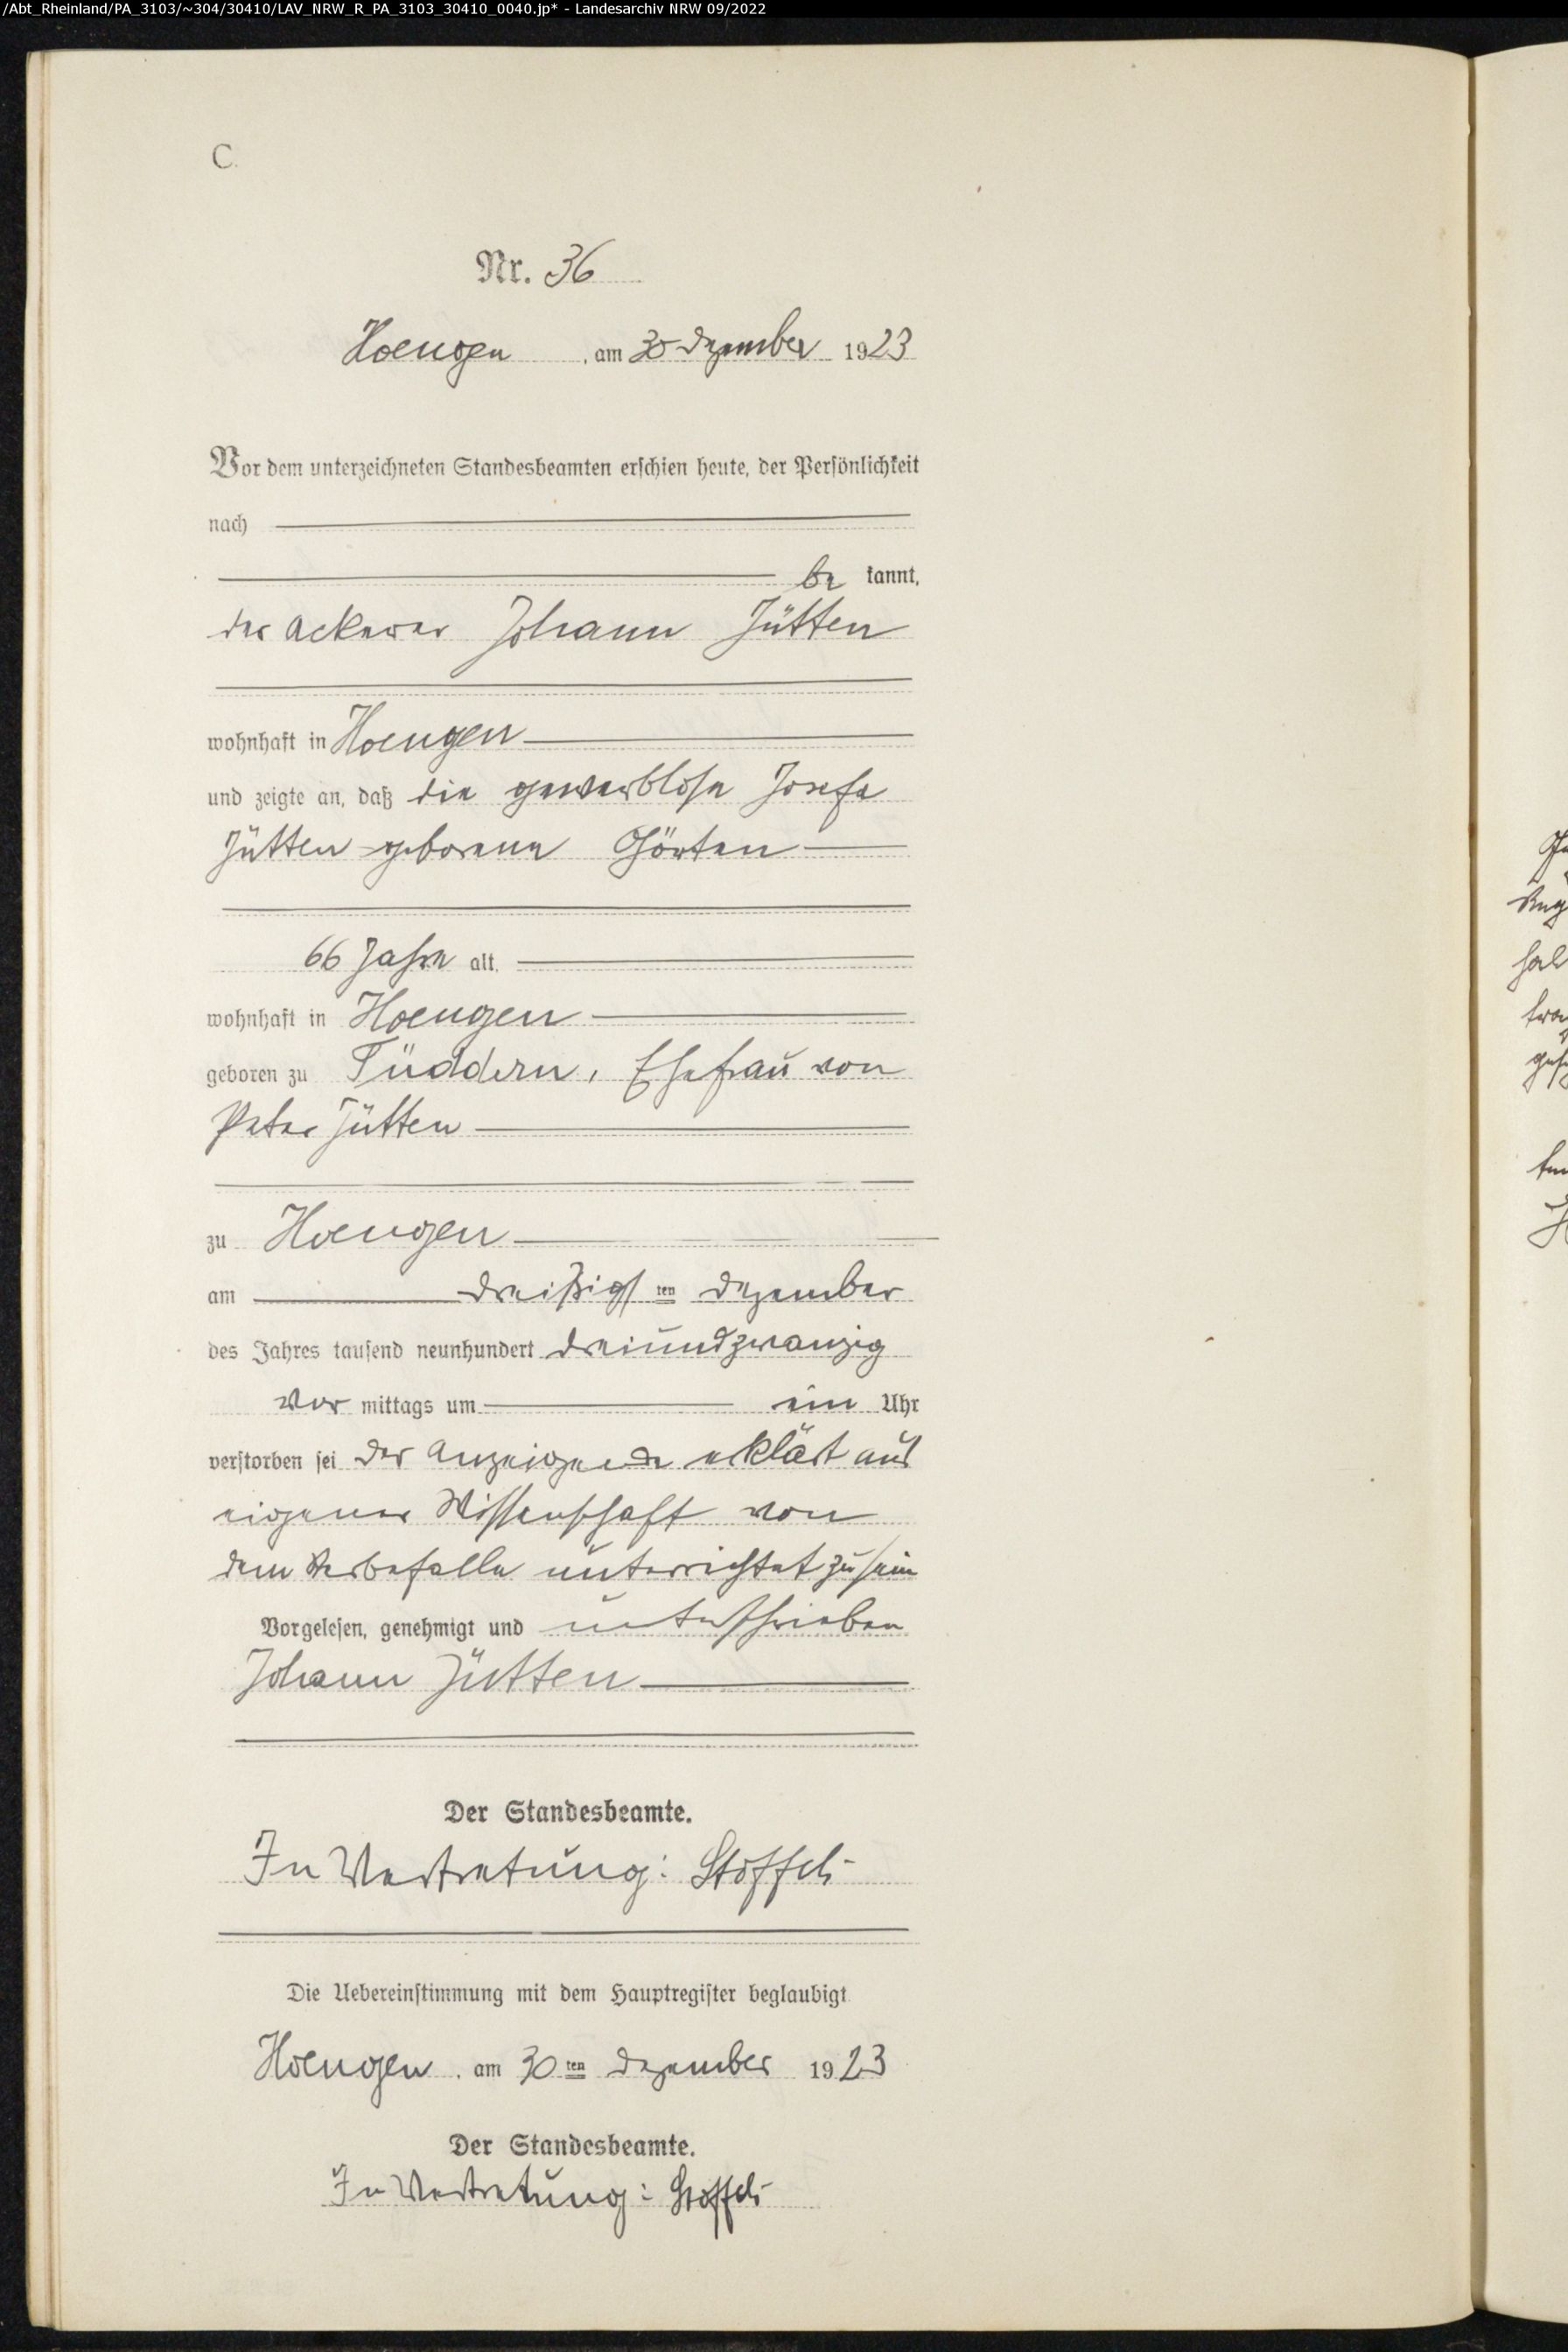 /Abt_Rheinland/PA_3103/~304/30410/LAV_NRW_R_PA_3103_30410_0040.jp* - Landesarchiv NRW 09/2022
C.
Nr. 36
Hoengen, am 30 Dezember 1923
Vor dem unterzeichneten Standesbeamten erschien heute, der Persönlichkeit
nach
be kannt,
der Ackerer Johann Jütten
wohnhaft in Hoengen
und zeigte an, daß die gewerblose Josefa
Jütten geborene Görten
66 Jahre alt,
wohnhaft in Hoengen
geboren zu Tüddern, Ehefrau von
Peter Jütten
zu Hoengen
am dreißigsten Dezember
des Jahres tausend neunhundert dreiundzwanzig
Vor mittags um ein Uhr
verstorben sei Der Anzeigende erklärt aus
eigener Wissenschaft von
dem Sterbefalle unterrichtet zu sein
Vorgelesen, genehmigt und unterschrieben
Johann Jütten
Der Standesbeamte.
In Vertretung: Stoffels
Die Uebereinstimmung mit dem Hauptregister beglaubigt
Hoengen, am 30ten Dezember 1923
Der Standesbeamte.
In Vertretung: Stoffels